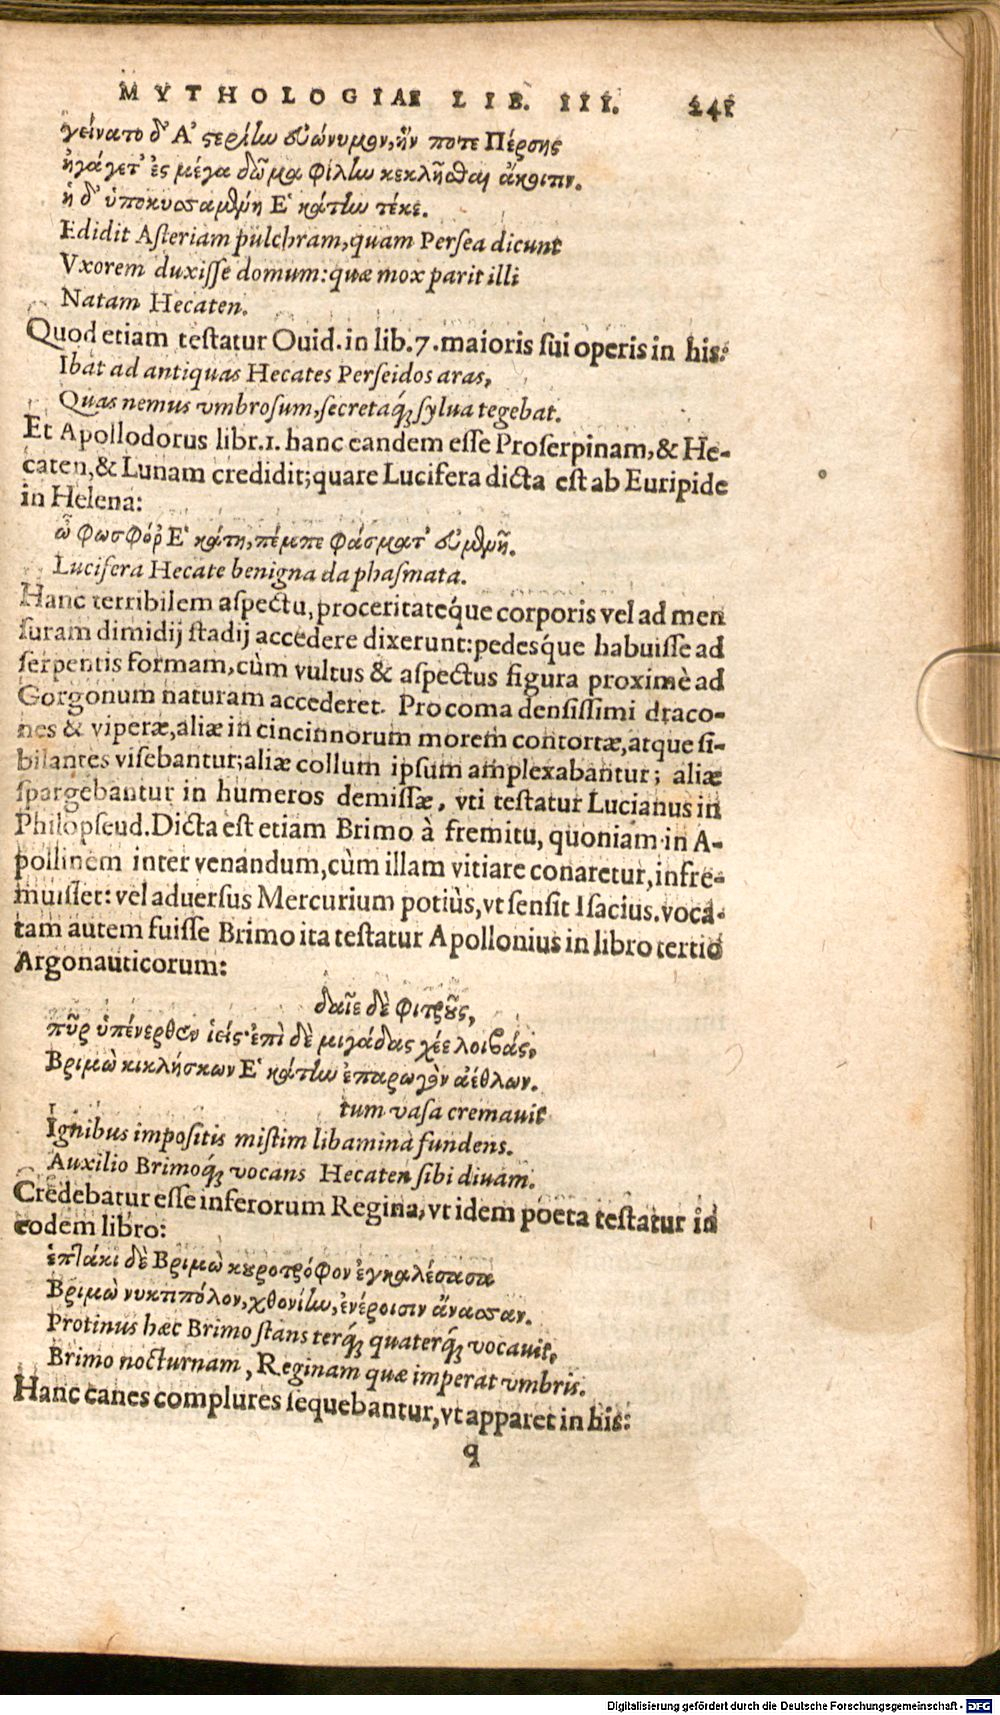 MYTHOLOGIÆ LIB. III. 241
γείνατο δ' Ἀστερίην εὐώνυμον, ἥν ποτε Πέρσης
ἠγάγετ' ἐς μέγα δῶμα φίλην κεκλῆσθαι ἄκοιτιν.
ἡ δ' ὑποκυσαμένη Ἑκάτην τέκε.
Edidit Aſteriam pulchram, quam Perſea dicunt
Vxorem duxiſſe domum: quæ mox parit illi
Natam Hecaten.
Quod etiam teſtatur Ouid. in lib. 7. maioris ſui operis in his:
Ibat ad antiquas Hecates Perſeidos aras,
Quas nemus vmbroſum, ſecretaq́; ſylua tegebat.
Et Apollodorus libr. 1. hanc eandem eſſe Proſerpinam, & He-
caten, & Lunam credidit; quare Lucifera dicta eſt ab Euripide
in Helena:
ὦ φωσφόρ' Ἑκάτη, πέμπε φάσματ' εὐμενῆ.
Lucifera Hecate benigna da phaſmata.
Hanc terribilem aſpectu, proceritateq́ue corporis vel ad men
ſuram dimidij ſtadij accedere dixerunt: pedesq́ue habuiſſe ad
ſerpentis formam, cùm vultus & aſpectus figura proximè ad
Gorgonum naturam accederet. Pro coma denſiſſimi draco-
nes & viperæ, aliæ in cincinnorum morem contortæ, atque ſi-
bilantes viſebantur; aliæ collum ipſum amplexabantur; aliæ
ſpargebantur in humeros demiſſæ, vti teſtatur Lucianus in
Philopſeud. Dicta eſt etiam Brimo à fremitu, quoniam in A-
pollinem inter venandum, cùm illam vitiare conaretur, infre-
muiſſet: vel aduerſus Mercurium potiùs, vt ſenſit Iſacius. voca-
tam autem fuiſſe Brimo ita teſtatur Apollonius in libro tertio
Argonauticorum:
δαῖε δὲ φιτροὺς,
πῦρ ὑπένερθεν ἱεὶς· ἐπὶ δὲ μιγάδας χέε λοιβάς,
Βριμὼ κικλήσκων Ἑκάτην ἐπαρωγὸν ἀέθλων.
tum vaſa cremauit
Ignibus impoſitis miſtim libamina fundens.
Auxilio Brimoq́; vocans Hecaten ſibi diuam.
Credebatur eſſe inferorum Regina, vt idem poeta teſtatur in
eodem libro:
ἑπτάκι δὲ Βριμὼ κουροτρόφον ἐγκαλέσασα
Βριμὼ νυκτιπόλον, χθονίην, ἐνέροισιν ἄνασσαν.
Protinus hæc Brimo ſtans terq́; quaterq́; vocauit,
Brimo nocturnam, Reginam quæ imperat vmbris.
Hanc canes complures ſequebantur, vt apparet in his:
q
Digitalisierung gefördert durch die Deutsche Forschungsgemeinschaft - DFG